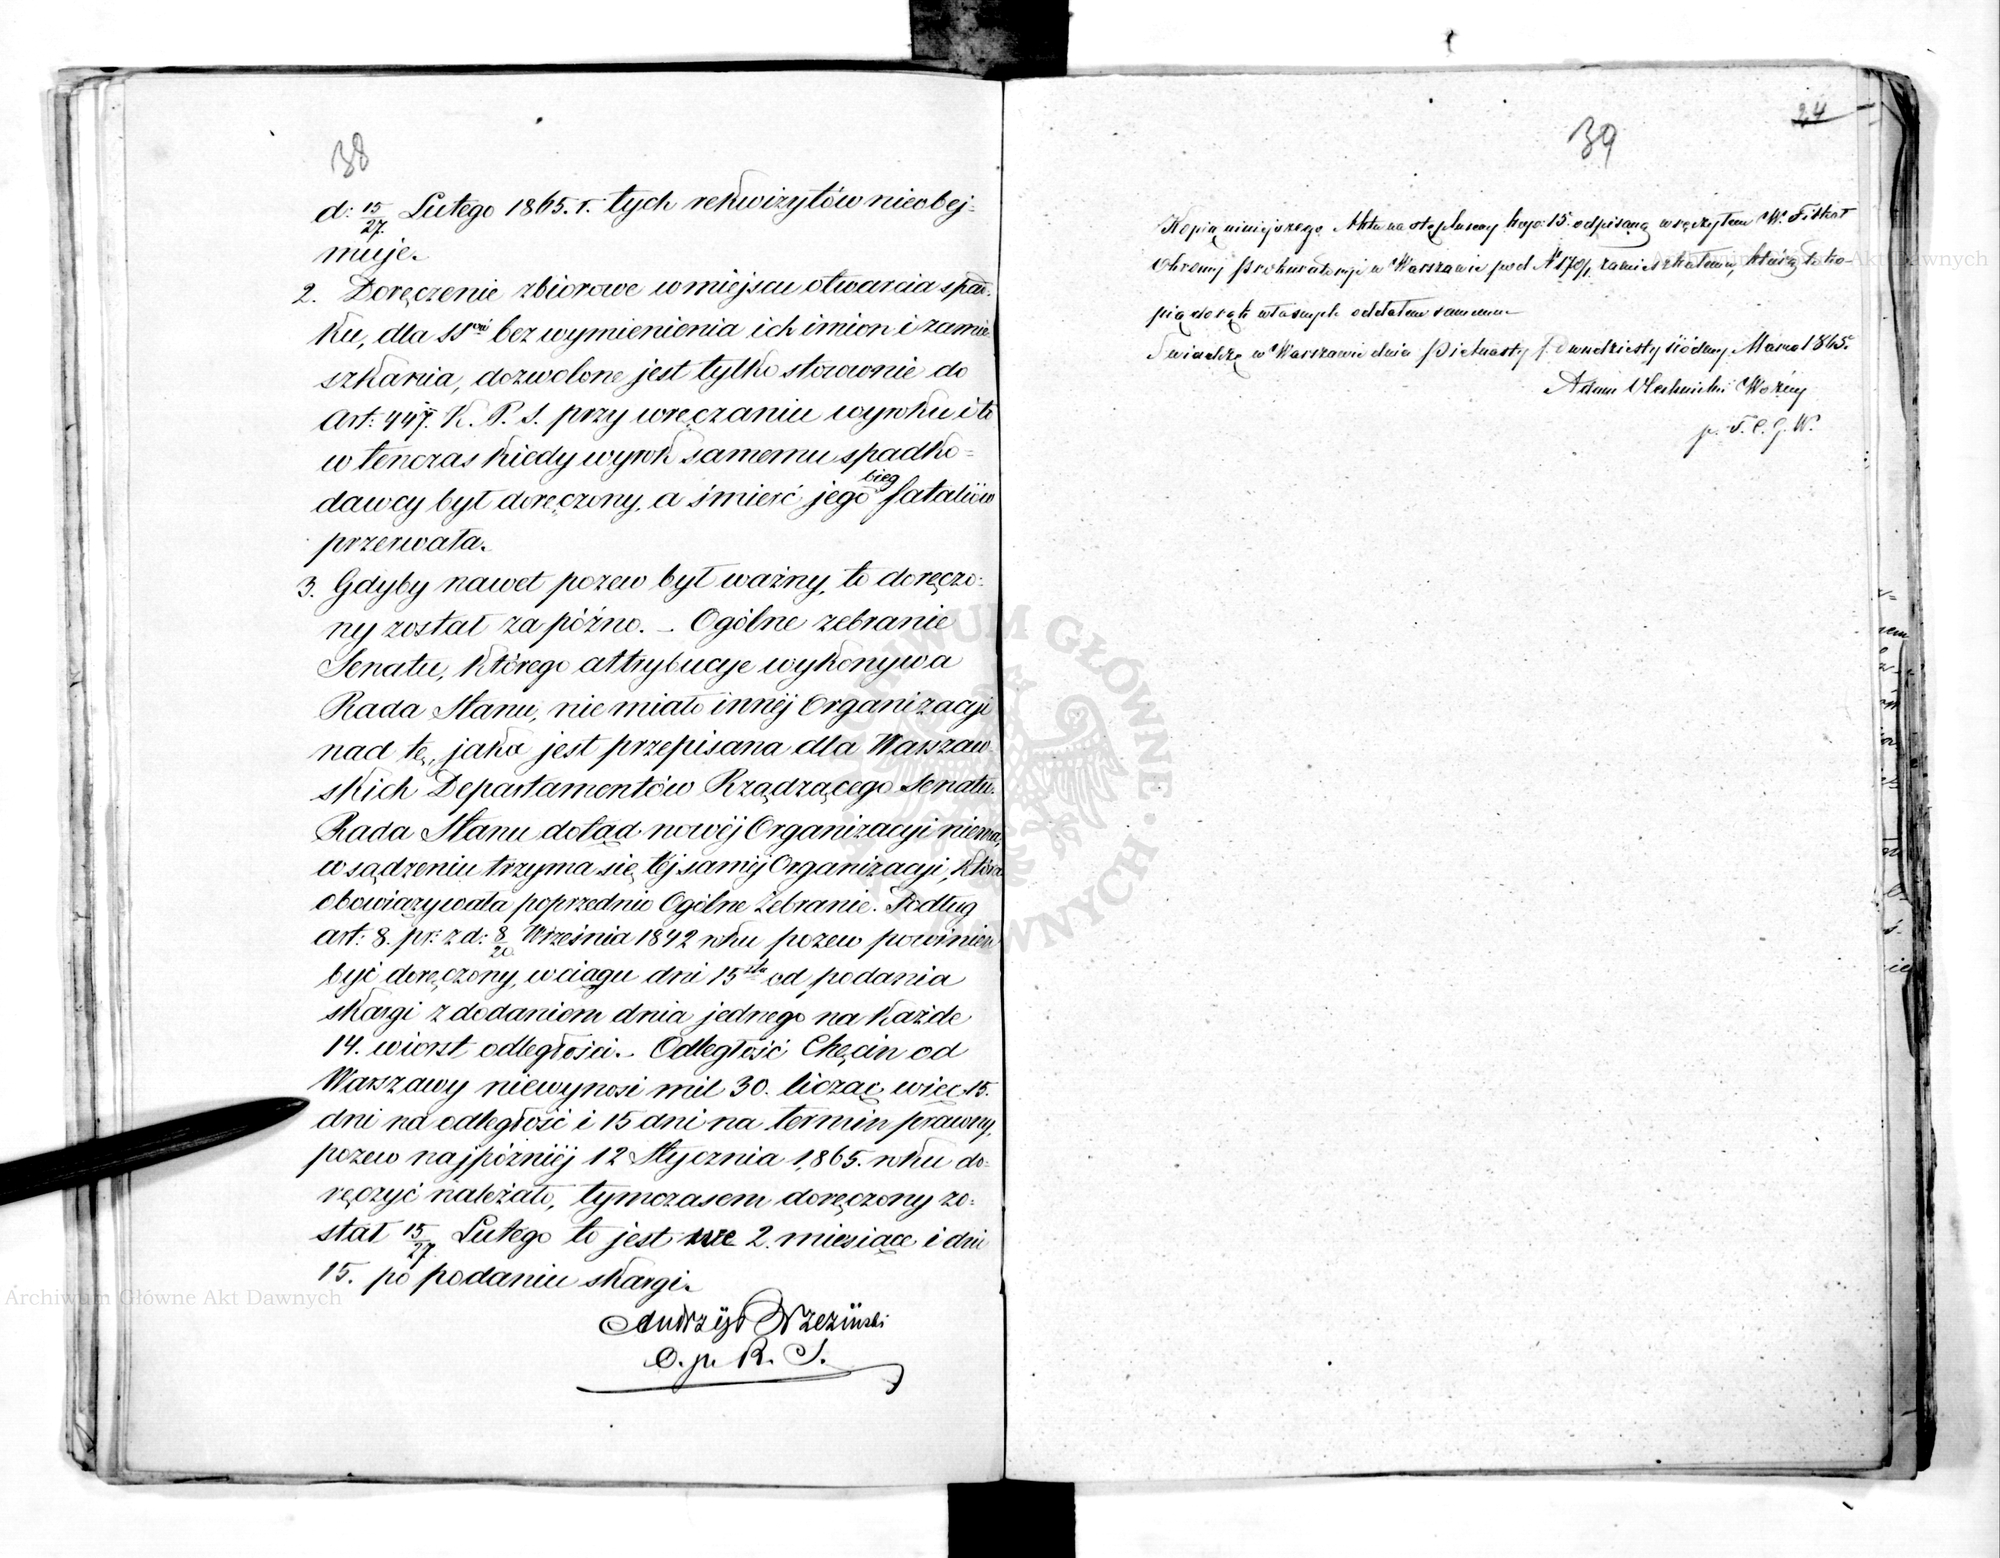 38
d: 15/27 Lutego 1865. r. tych rekwizytów nieobej-
muje.
2. Doręczenie zbiorowe w miejscu otwarcia spad-
ku, dla SSrów bez wymienienia ich imion i zamie
szkania, dozwolone jest tylko stosownie do
Art: 447. K. P. S. przy wręczaniu wyroku i to
w tenczas kiedy wyrok samemu spadko-
dawcy był doręczony, a śmierć jego bieg fataliów
przerwała.
3. Gdyby nawet pozew był ważny, to doręczo-
ny został za późno. – Ogólne zebranie
Senatu, którego attrybucye wykonywa
Rada Stanu, nie miało innéj Organizacyi
nad tę, jaka jest przepisana dla Warszaw-
skich Departamentów Rządzącego Senatu.
Rada Stanu dotąd nowéj Organizacyi niema,
w sądzeniu trzyma się téj saméj Organizacyi, która
obowiązywała poprzednio Ogólne Zebranie. Podług
art: 8. pr: z d: 8/20 Września 1842 roku pozew powinien
być doręczony, w ciągu dni 15stu od podania
skargi z dodaniem dnia jednego na każde
14. wiorst odległości. Odległość Chęcin od
Warszawy niewynosi mil 30. licząc więc 15.
dni na odległość i 15 dni na termin prawny,
pozew najpóźniéj 12 Stycznia 1865. roku do-
ręczyć należało, tymczasem doręczony zo-
stał 15/27 Lutego to jest we 2. miesiące i dni
15. po podaniu skargi.
Andrzéj Brzeziński
O. p. R. S.
39
24
Kopią niniejszego Aktu na stęplu ceny kop: 15. odpisaną wręczyłem W.
Obrońcy Prokuratoryi w Warszawie pod N 170/1 zamieszkałemu, którą to ko-
pią do rąk własnych oddałem samemu
Świadczę w Warszawie dnia Piętnasty / Dwudziesty siódmy Marca 1865r.
Adam Woźny
p. T. C. G. W.
Archiwum Główne Akt Dawnych
Archiwum Główne Akt Dawnych
ARCHIWUM GŁÓWNE AKT DAWNYCH